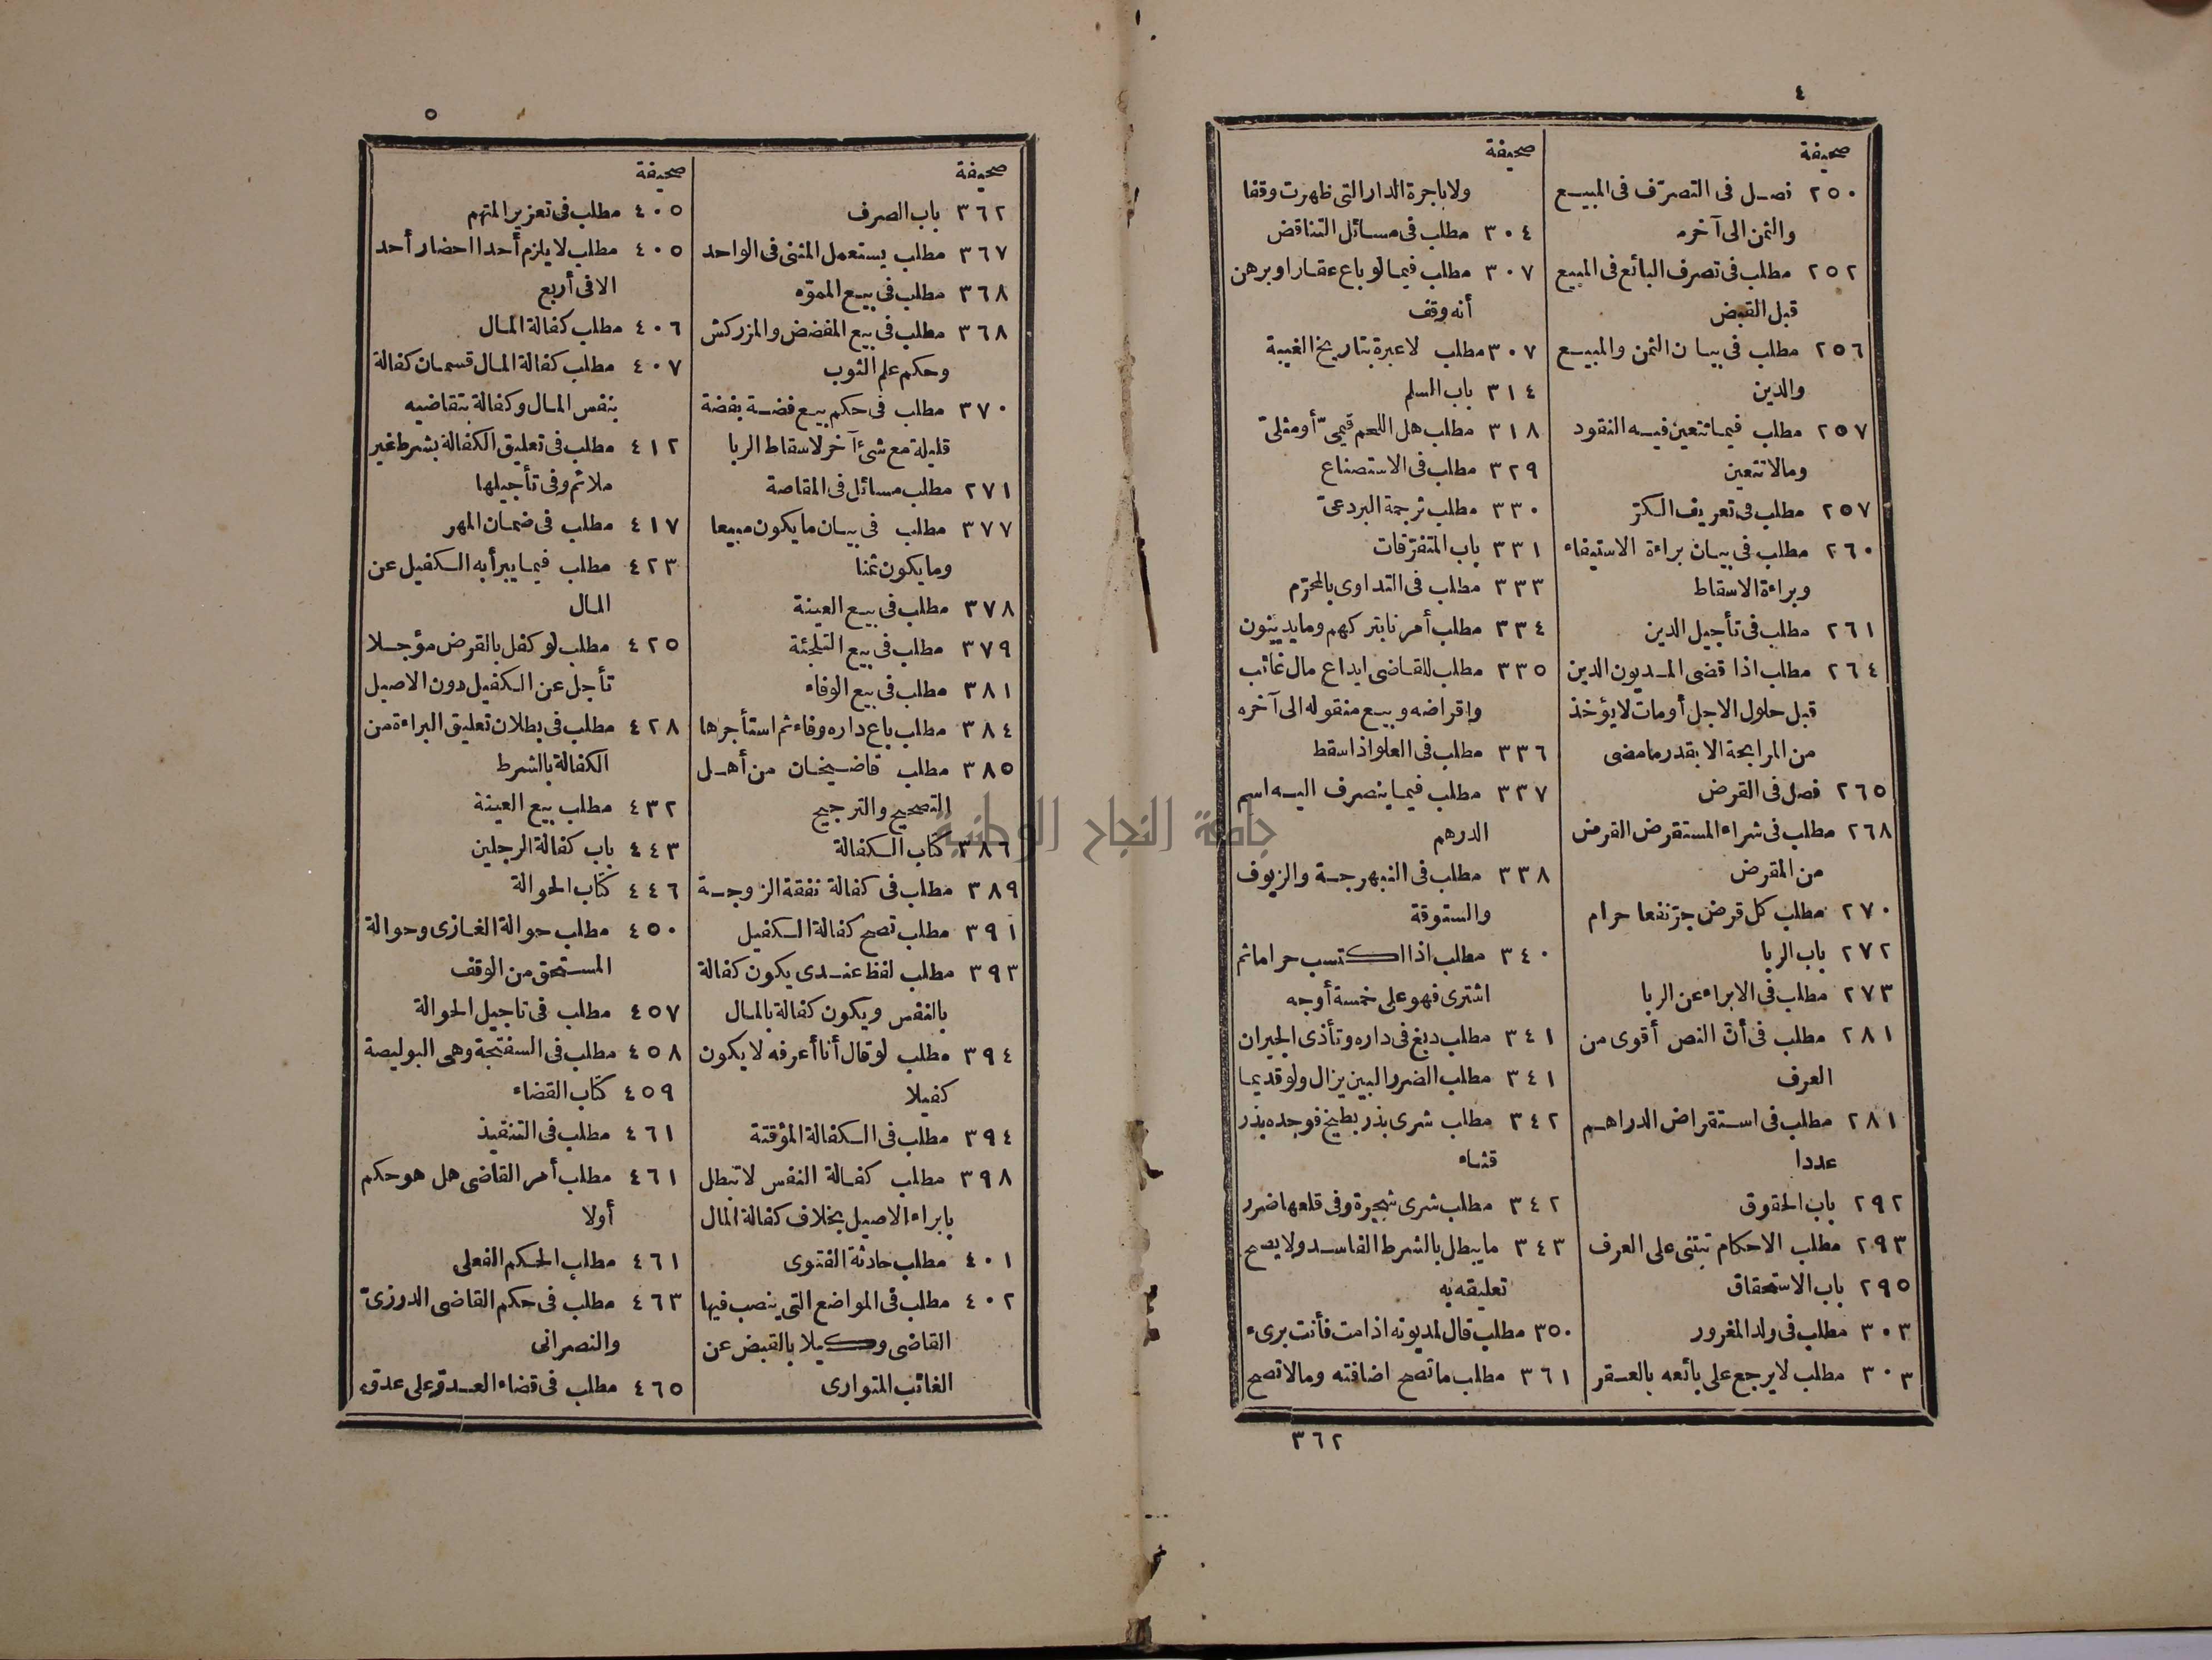 ٤
صحيفة
٢٥٠ فصل فى التصرّف فى المبيع
والثمن الى آخره
٢٥٢ مطلب فى تصرف البائع فى المبيع
قبل القبض
٢٥٦ مطلب فى بيان الثمن والمبيع
والدين
٢٥٧ مطلب فيما تتعين فيه النقود
ومالا تتعين
٢٥٧ مطلب فى تعريف الكرّ
٢٦٠ مطلب فى بيان براءة الاستيفاء
وبراءة الاسقاط
٢٦١ مطلب فى تأجيل الدين
٢٦٤ مطلب اذا قضى المديون الدين
قبل حلول الاجل أومات لا يؤخذ
من المرابحة الا بقدر ما مضى
٢٦٥ فصل فى القرض
٢٦٨ مطلب فى شراء المستقرض القرض
من المقرض
٢٧٠ مطلب كل قرض جرّ نفعا حرام
٢٧٢ باب الربا
٢٧٣ مطلب فى الابراء عن الربا
٢٨١ مطلب فى أنّ النص أقوى من
العرف
٢٨١ مطلب فى استقراض الدراهم
عددا
٢٩٢ باب الحقوق
٢٩٣ مطلب الاحكام تبتنى على العرف
٢٩٥ باب الاستحقاق
٣٠٣ مطلب فى ولد المغرور
٣٠٣ مطلب لا يرجع على بائعه بالعقر
صحيفة
ولا باجرة الدار التى ظهرت وقفا
٣٠٤ مطلب فى مسائل التناقض
٣٠٧ مطلب فيما لو باع عقارا وبرهن
أنه وقف
٣٠٧ مطلب لا عبرة بتاريخ الغيبة
٣١٤ باب السلم
٣١٨ مطلب هل اللحم قيمىّ أو مثلىّ
٣٢٩ مطلب فى الاستصناع
٣٣٠ مطلب ترجمة البردعىّ
٣٣١ باب المتفرّقات
٣٣٣ مطلب فى التداوى بالمحرّم
٣٣٤ مطلب أمرنا بتركهم وما يدينون
٣٣٥ مطلب للقاضى ايداع مال غائب
واقراضه وبيع منقوله الى آخره
٣٣٦ مطلب فى العلو اذا سقط
٣٣٧ مطلب فيما ينصرف اليه اسم
الدرهم
٣٣٨ مطلب فى النبهرجة والزيوف
والستوقة
٣٤٠ مطلب اذا اكتسب حراما ثم
اشترى فهو على خمسة أوجه
٣٤١ مطلب دبغ فى داره وتأذى الجيران
٣٤١ مطلب الضرر البين يزال ولو قديما
٣٤٢ مطلب شرى بذر بطيخ فوجده بذر
قثاء
٣٤٢ مطلب شرى شجرة وفى قلعها ضرر
٣٤٣ ما يبطل بالشرط الفاسد ولا يصح
تعليقه به
٣٥٠ مطلب قال لمديونه اذا مت فأنت برىء
٣٦١ مطلب ما تصح اضافته وما لا تصح
٣٦٢
٥
صحيفة
٣٦٢ باب الصرف
٣٦٧ مطلب يستعمل المثنى فى الواحد
٣٦٨ مطلب فى بيع المموّه
٣٦٨ مطلب فى بيع المفضض والمزركش
وحكم علم الثوب
٣٧٠ مطلب فى حكم بيع فضة بفضة
قليلة مع شئ آخر لاسقاط الربا
٢٧١ مطلب مسائل فى المقاصة
٣٧٧ مطلب فى بيان ما يكون مبيعا
وما يكون ثمنا
٣٧٨ مطلب فى بيع العينة
٣٧٩ مطلب فى بيع التلجئة
٣٨١ مطلب فى بيع الوفاء
٣٨٤ مطلب باع داره وفاء ثم استأجرها
٣٨٥ مطلب قاضيخان من أهل
التصحيح والترجيح
٣٨٦ كتاب الكفالة
٣٨٩ مطلب فى كفالة نفقة الزوجة
٣٩١ مطلب تصح كفالة الكفيل
٣٩٣ مطلب لفظ عندى يكون كفالة
بالنفس ويكون كفالة بالمال
٣٩٤ مطلب لو قال أنا أعرفه لا يكون
كفيلا
٣٩٤ مطلب فى الكفالة المؤقتة
٣٩٨ مطلب كفالة النفس لا تبطل
بابراء الاصيل بخلاف كفالة المال
٤٠١ مطلب حادثة الفتوى
٤٠٢ مطلب فى المواضع التى ينصب فيها
القاضى وكيلا بالقبض عن
الغائب المتوارى
صحيفة
٤٠٥ مطلب فى تعزير المتهم
٤٠٥ مطلب لا يلزم أحدا احضار أحد
الا فى أربع
٤٠٦ مطلب كفالة المال
٤٠٧ مطلب كفالة المال قسمان كفالة
بنفس المال وكفالة بتقاضيه
٤١٢ مطلب فى تعليق الكفالة بشرط غير
ملائم وفى تأجيلها
٤١٧ مطلب فى ضمان المهر
٤٢٣ مطلب فيما يبرأ به الكفيل عن
المال
٤٢٥ مطلب لو كفل بالقرض مؤجلا
تأجل عن الكفيل دون الاصيل
٤٢٨ مطلب فى بطلان تعليق البراءة من
الكفالة بالشرط
٤٣٢ مطلب بيع العينة
٤٤٣ باب كفالة الرجلين
٤٤٦ كتاب الحوالة
٤٥٠ مطلب حوالة الغازى وحوالة
المستحق من الوقف
٤٥٧ مطلب فى تاجيل الحوالة
٤٥٨ مطلب فى السفتجة وهى البوليصة
٤٥٩ كتاب القضاء
٤٦١ مطلب فى التنفيذ
٤٦١ مطلب أمر القاضى هل هو حكم
أولا
٤٦١ مطلب الحكم الفعلى
٤٦٣ مطلب فى حكم القاضى الدرزىّ
والنصرانى
٤٦٥ مطلب فى قضاء العدوّ على عدوّه
جامعة النجاح الوطنية